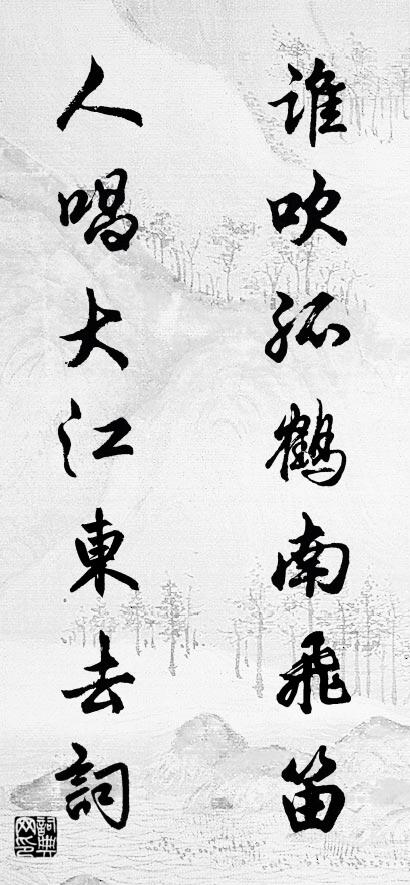 誰吹孤鶴南飛笛
人唱大江東去詞
詞典網印